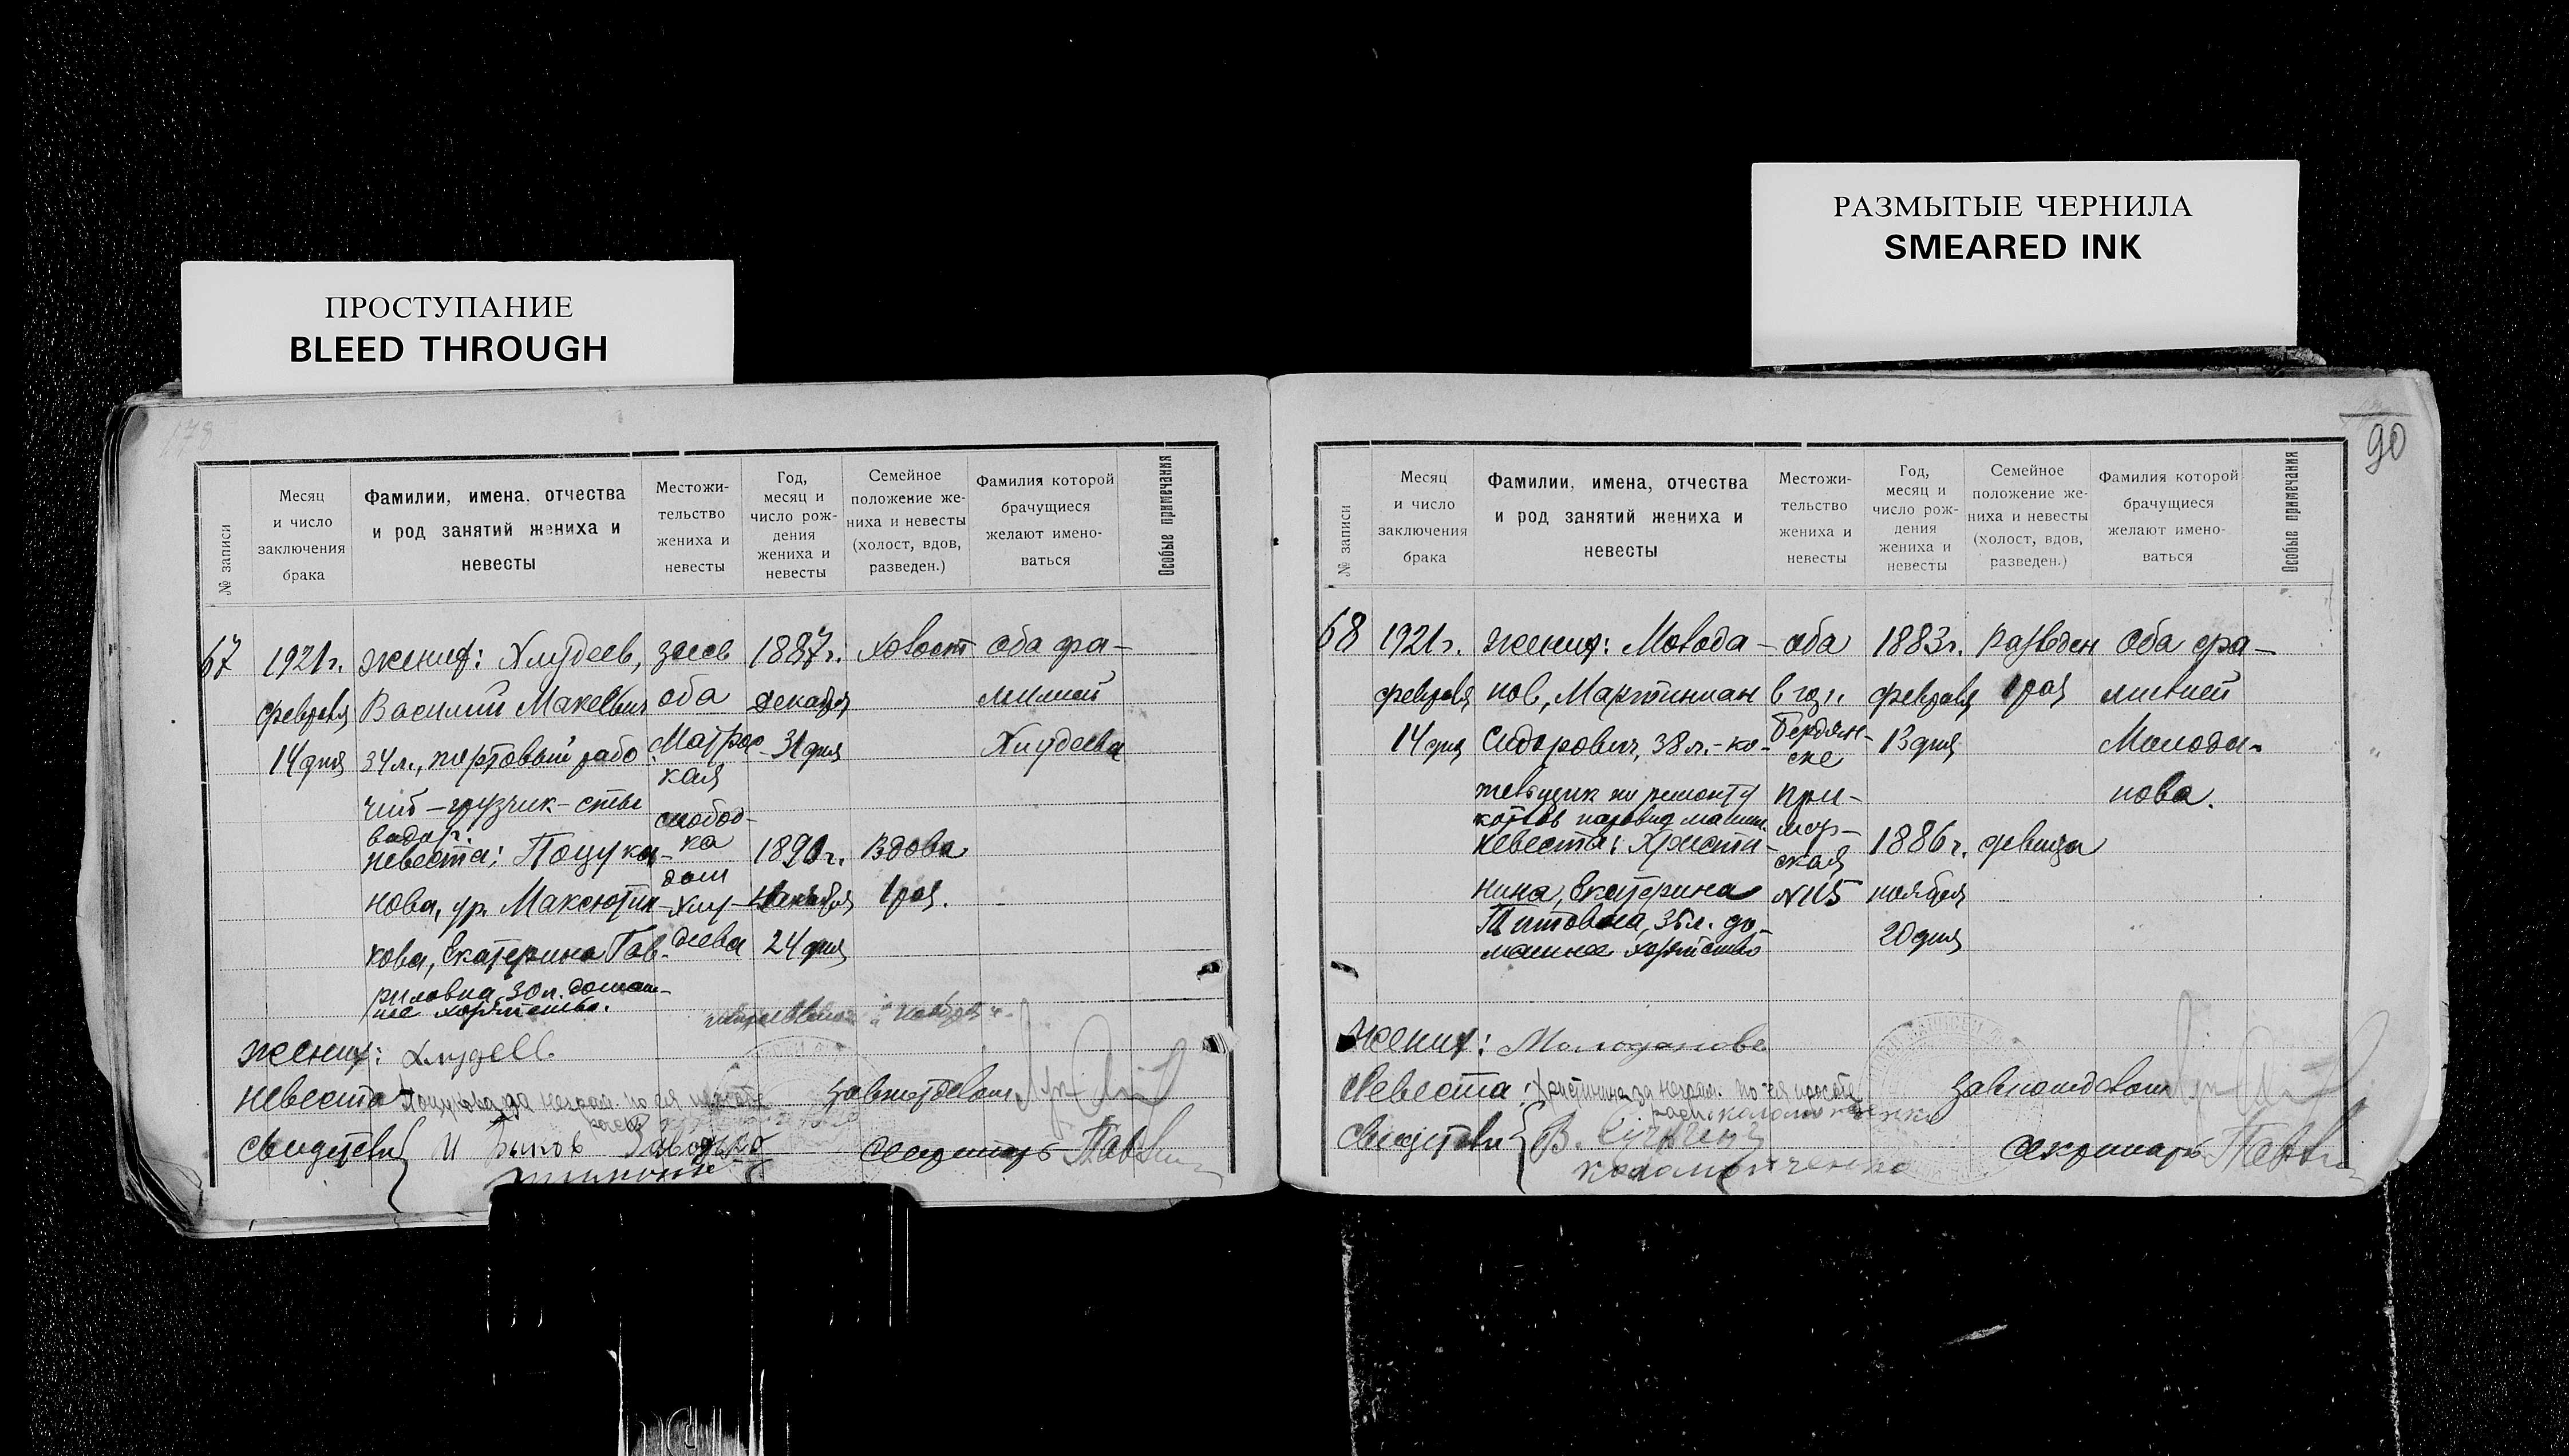 РАЗМЫТЫЕ ЧЕРНИЛА
SMEARED INK
ПРОСТУПАНИЕ
BLEED THROUGH
178
№ записи
Месяц
и число
заключения
брака
Фамилии, имена, отчества
и род занятий жениха и
невесты
Местожи-
тельство
жениха и
невесты
Год,
месяц и
число рож-
дения
жениха и
невесты
Семейное
положение же-
ниха и невесты
(холост, вдов,
разведен.)
Фамилия которой
брачущиеся
желают имено-
ваться
Особые примечания
67
1921г.
февраля
14 дня
жених: Хлудеев,
Василий
34 л., портовый рабо
чий - грузчик - сти
вадор.
невеста: Поцука-
нова, ур. Максютин-
кова, Екатерина Гав-
риловна, 30 л. домаш-
нее хозяйство.
здесь
оба
Матрос
кая
слобод-
ка
дом
Хлу-
деева
1887г.
декабря
31 дня
1890г.
24 дня
холост
вдова
1 раз.
оба фа-
милией
Хлудеева
жених: Хлудеев.
невеста
за неграм. по ея просьбе
завподотделом
свидетели
секретарь
90
№ записи
Месяц
и число
заключения
брака
Фамилии, имена, отчества
и род занятий жениха и
невесты
Местожи-
тельство
жениха и
невесты
Год,
месяц и
число рож-
дения
жениха и
невесты
Семейное
положение же-
ниха и невесты
(холост, вдов,
разведен.)
Фамилия которой
брачущиеся
желают имено-
ваться
Особые примечания
68
1921г.
февраля
14 дня
жених: Молода-
нов, Мартиниан
Сидорович, 38 л. - ко-
тельщик по ремонту
котлов паровых машин.
невеста: Христи-
нина, Екатерина
Титовна, 35 л. до-
машнее хозяйство
оба
в гор.
Бердян-
ске
При-
мор-
ская
N 115
1883г.
февраля
13 дня
1886г.
ноября
20 дня
разведен
1 раз
девица
оба фа-
милией
Молода-
нова.
жених: Молоданов
Невеста: Христинина за неграм. по ея просьбе
расп. Коломойченко
завподотделом
Свидетели
Коломойченко
секретарь